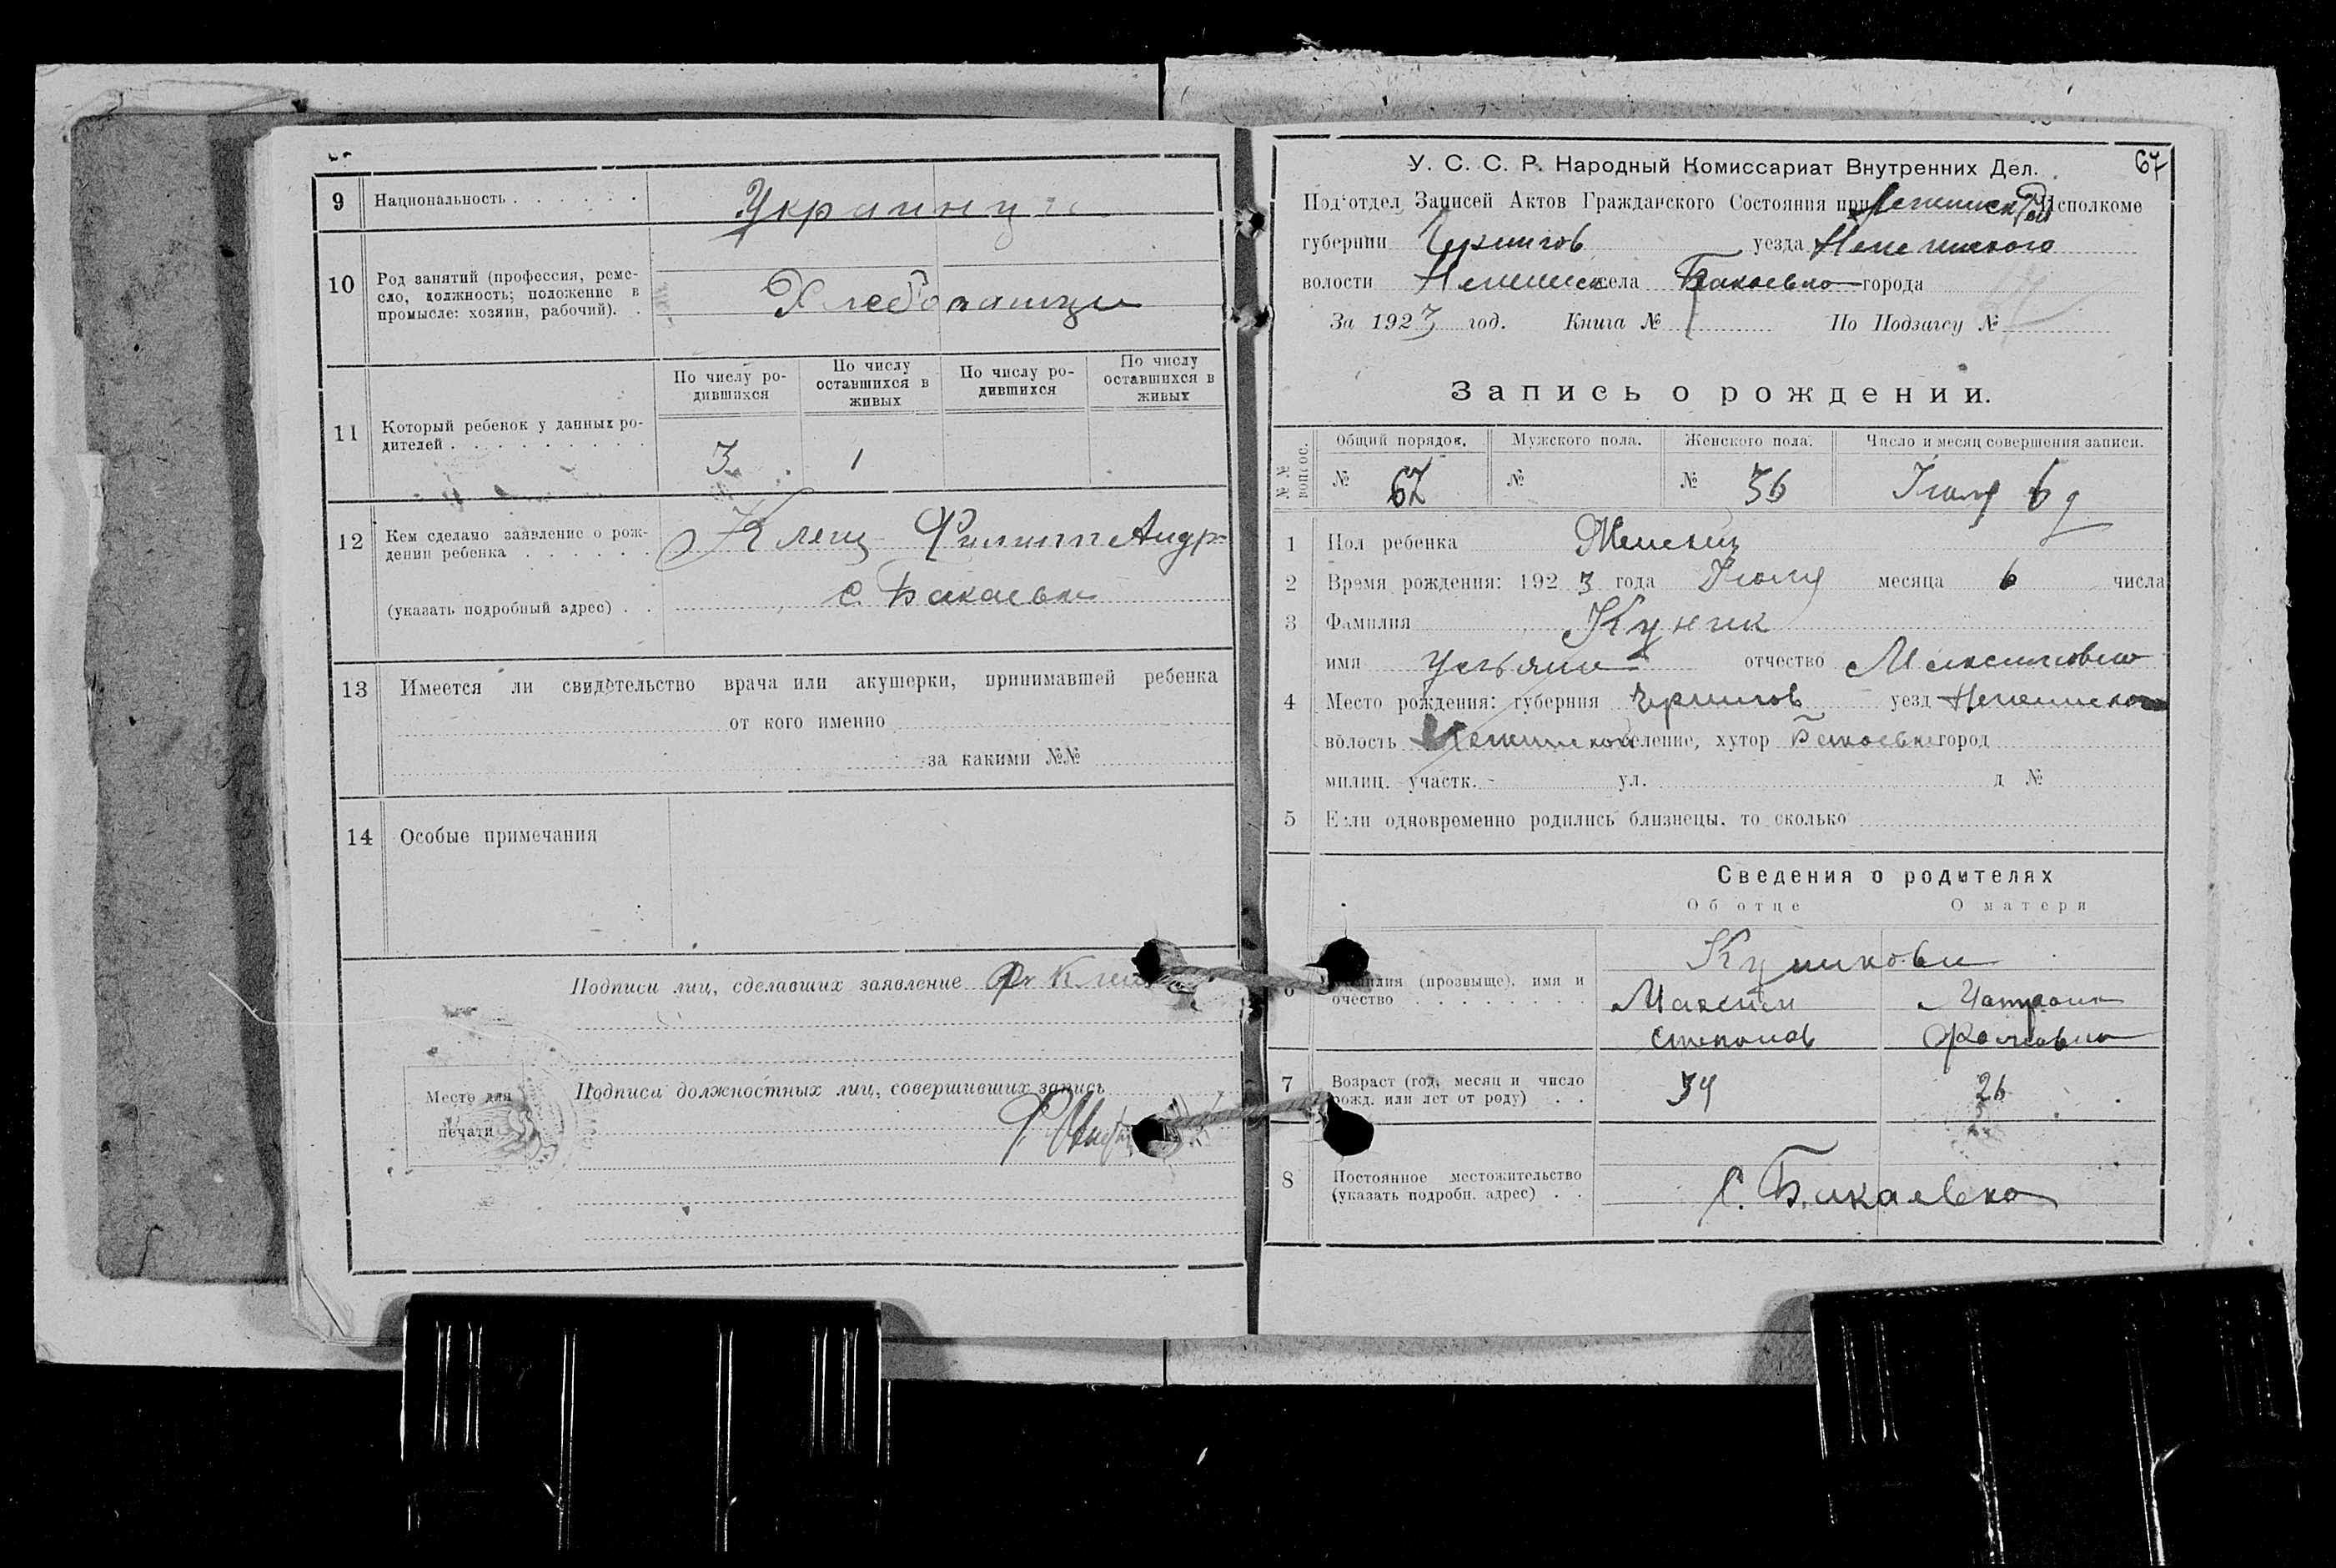 9 Национальность . . . . . . Украинцы
10 Род занятий (профессия, реме-
сло, должность; положение в
промысле: хозяин, рабочий). .
Хлебопашцы
11 Который ребенок у данных ро-
дителей . . . . . . . . . .
По числу ро-
дившихся
По числу
оставшихся в
живых
По числу ро-
дившихся
По числу
оставшихся в
живых
3 1
12 Кем сделано заявление о рож-
дении ребенка . . . . . .
Клещ Филипп Андр
(указать подробный адрес) . . с. Бакаевка
13 Имеется ли свидетельство врача или акушерки, принимавшей ребенка
от кого именно
за какими №№
14 Особые примечания
Подписи лиц, сделавших заявление
Подписи должностных лиц, совершивших запись
Место для
печати
67
У. С. С. Р. Народный Комиссариат Внутренних Дел.
Под‘отдел Записей Актов Гражданского Состояния при Исполкоме
губернии Чернигов уезда Неженского
волости села Бакаевка города
За 1923 год. Книга № По Подзагсу №
Запись о рождении.
№ №
вопрос.
Общий порядок. Мужского пола. Женского пола. Число и месяц совершения записи.
№ 67 № № 36 Июля 6 д
1 Пол ребенка Женский
2 Время рождения: 1923 года Июля месяца 6 числа
3 Фамилия Куник
имя Ульяна отчество Максимовна
4 Место рождения: губерния Чернигов уезд Неженского
волость селение, хутор Бакаевка город
милиц. участк. ул. д №
5 Если одновременно родились близнецы, то сколько
Сведения о родителях
Об отце О матери
6 Фамилия (прозвище), имя и
очество . . . . . . . .
Куникови
Максим Матрона
Степанов
7 Возраст (год, месяц и число
рожд. или лет от роду) . .
34 26
8 Постоянное местожительство
(указать подробн. адрес) . .
С. Бакаевка